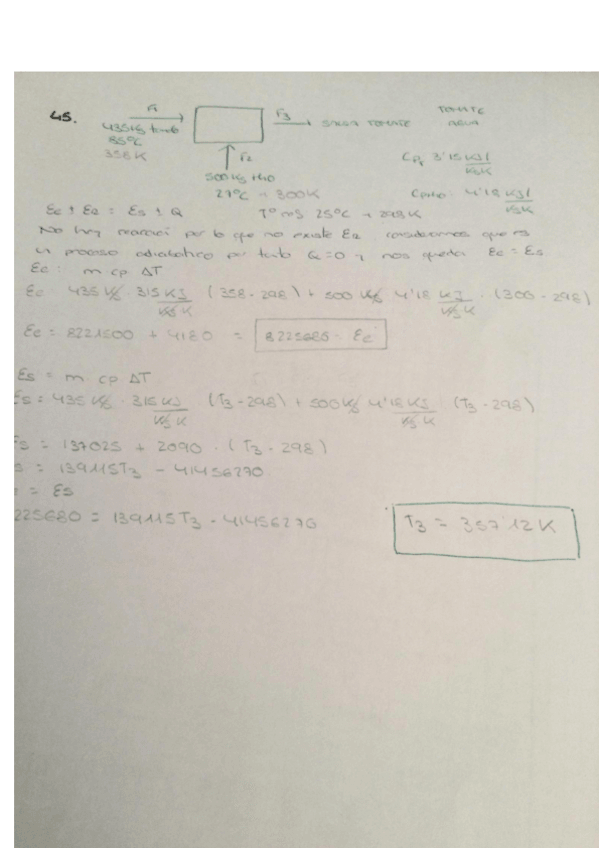 45.
F1
435 Kg tomate
85ºC
358 K
F3
SALSA TOMATE
TOMATE
AGUA
F2
500 Kg H2O
27ºC → 300K
Cp, 3'15 KJ/Kg K
CpH2O: 4'18 KJ/Kg K
Tº ref 25ºC → 298 K
No hay reacción por lo que no existe consideramos que es
un proceso adiabático por tanto Q=0 y nos queda Ee = Es
Ee: m cp ΔT
Ee 435 Kg · 315 KJ/Kg K (358 - 298) + 500 Kg 4'18 KJ/Kg K · (300 - 298)
Ee = 8221500 + 4180 = 8225680 = Ee
Es = m cp ΔT
Es = 435 Kg · 315 KJ/Kg K (T3 - 298) + 500 Kg 4'18 KJ/Kg K (T3 - 298)
Es = 137025 + 2090 · (T3 - 298)
s = 139115T3 - 41456270
= Es
225680 = 139115T3 - 41456270
T3 = 357'12 K